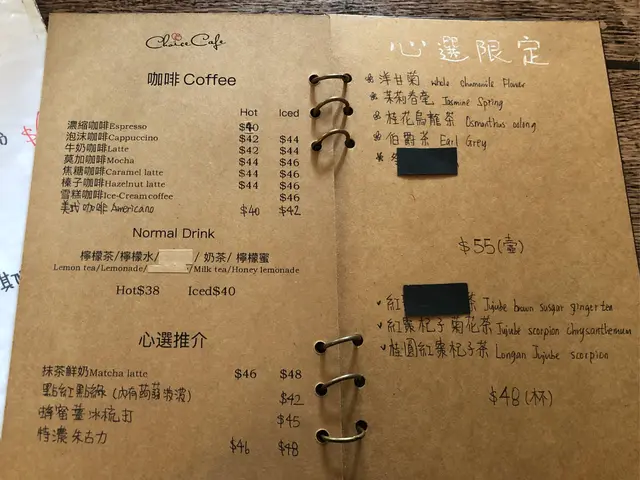 Choice Cafe
咖啡 Coffee
Hot Iced
濃縮咖啡Espresso $40
泡沫咖啡Cappuccino $42 $44
牛奶咖啡Latte $42 $44
莫加咖啡Mocha $44 $46
焦糖咖啡Caramel latte $44 $46
榛子咖啡Hazelnut latte $44 $46
雪糕咖啡Ice-Creamcoffee $46
美式咖啡Americano $40 $42
Normal Drink
檸檬茶/檸檬水/ / 奶茶/ 檸檬蜜
Lemon tea/Lemonade/ / Milk tea/Honey lemonade
Hot$38 Iced$40
心選推介
抹茶鮮奶Matcha latte $46 $48
點紅點綠 (內有蒟蒻 $42
蜂蜜薑冰梳打 $45
特濃朱古力 $46 $48
心選限定
洋甘菊 Whole Chamomile Flower
茉莉春毫 Jasmine Spring
桂花烏龍茶 Osmanthus oolong
伯爵茶 Earl Grey
$55(壺)
紅 茶 Jujube brown susgar ginger tea
紅棗杞子菊花茶 Jujube scorpion chrysanthemum
桂圓紅棗杞子茶 Longan Jujube scorpion
$48(杯)